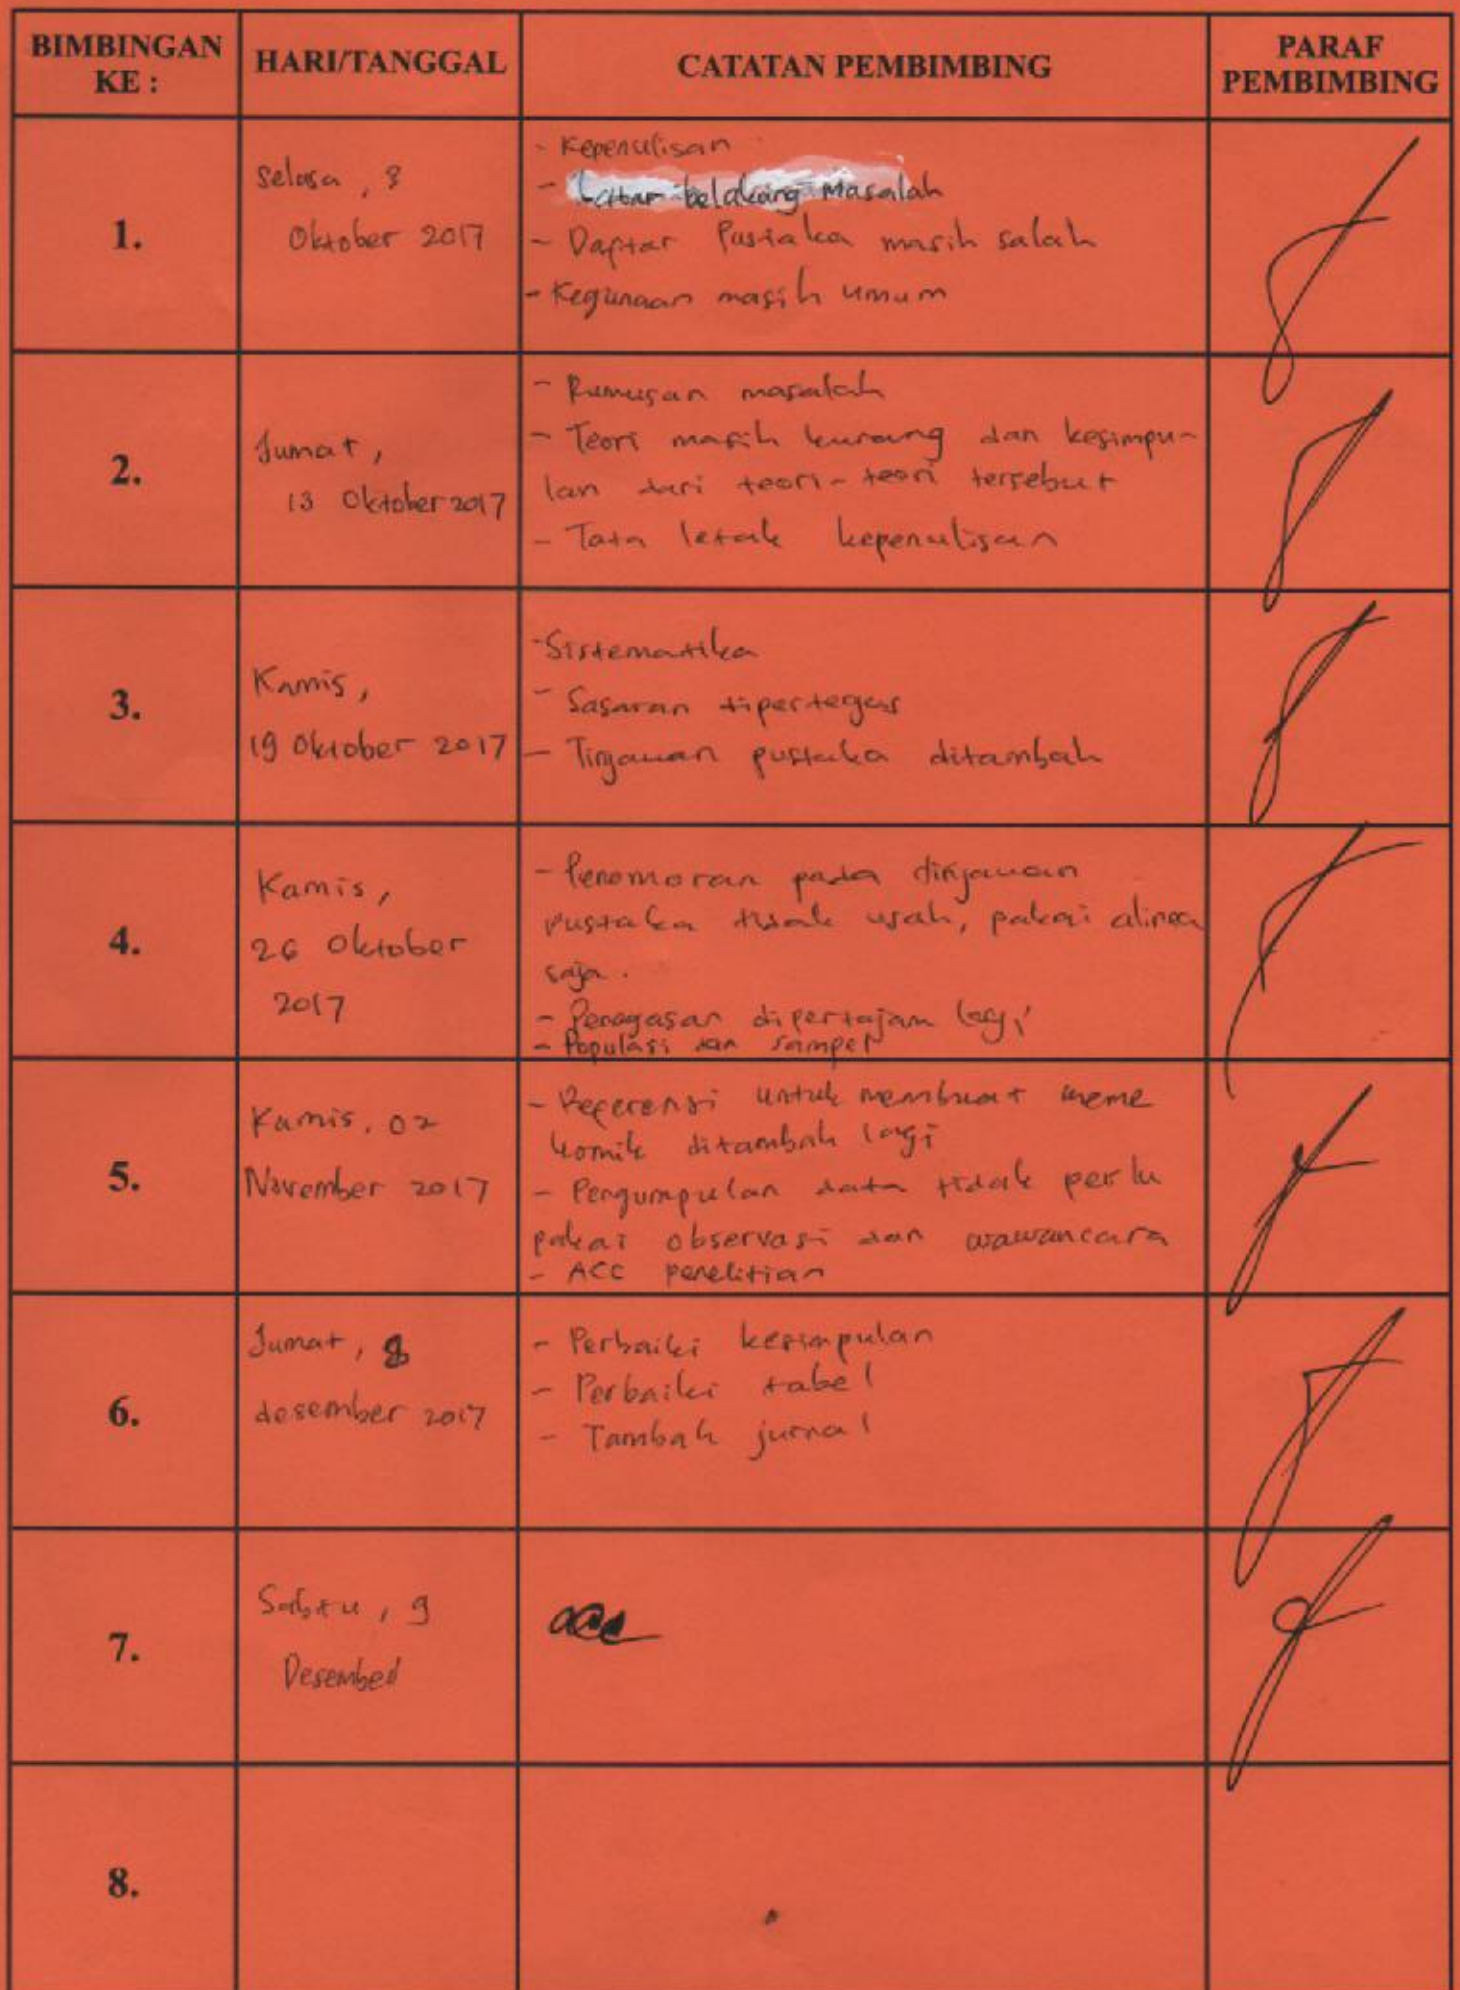 BIMBINGAN KE :
HARI/TANGGAL
CATATAN PEMBIMBING
PARAF PEMBIMBING
1.
Selasa, 3
Oktober 2017
- Kepenulisan
- Latar belakang Masalah
- Daftar Pustaka masih salah
- Kegunaan masih umum
2.
Jumat,
13 Oktober 2017
- Rumusan masalah
- Teori masih kurang dan kesimpu-
lan dari teori-teori tersebut
- Tata letak kepenulisan
3.
Kamis,
19 Oktober 2017
- Sistematika
- Sasaran dipertegas
- Tinjauan pustaka ditambah
4.
Kamis,
26 Oktober
2017
- Penomoran pada tinjauan
pustaka tidak usah, pakai alinea
saja.
- Penegasan dipertajam lagi
- Populasi dan sampel
5.
Kamis, 02
November 2017
- Referensi untuk membuat meme
komik ditambah lagi
- Pengumpulan data tidak perlu
pakai observasi dan wawancara
- ACC penelitian
6.
Jumat, 8
desember 2017
- Perbaiki kesimpulan
- Perbaiki tabel
- Tambah jurnal
7.
Sabtu, 9
Desember
acc
8.